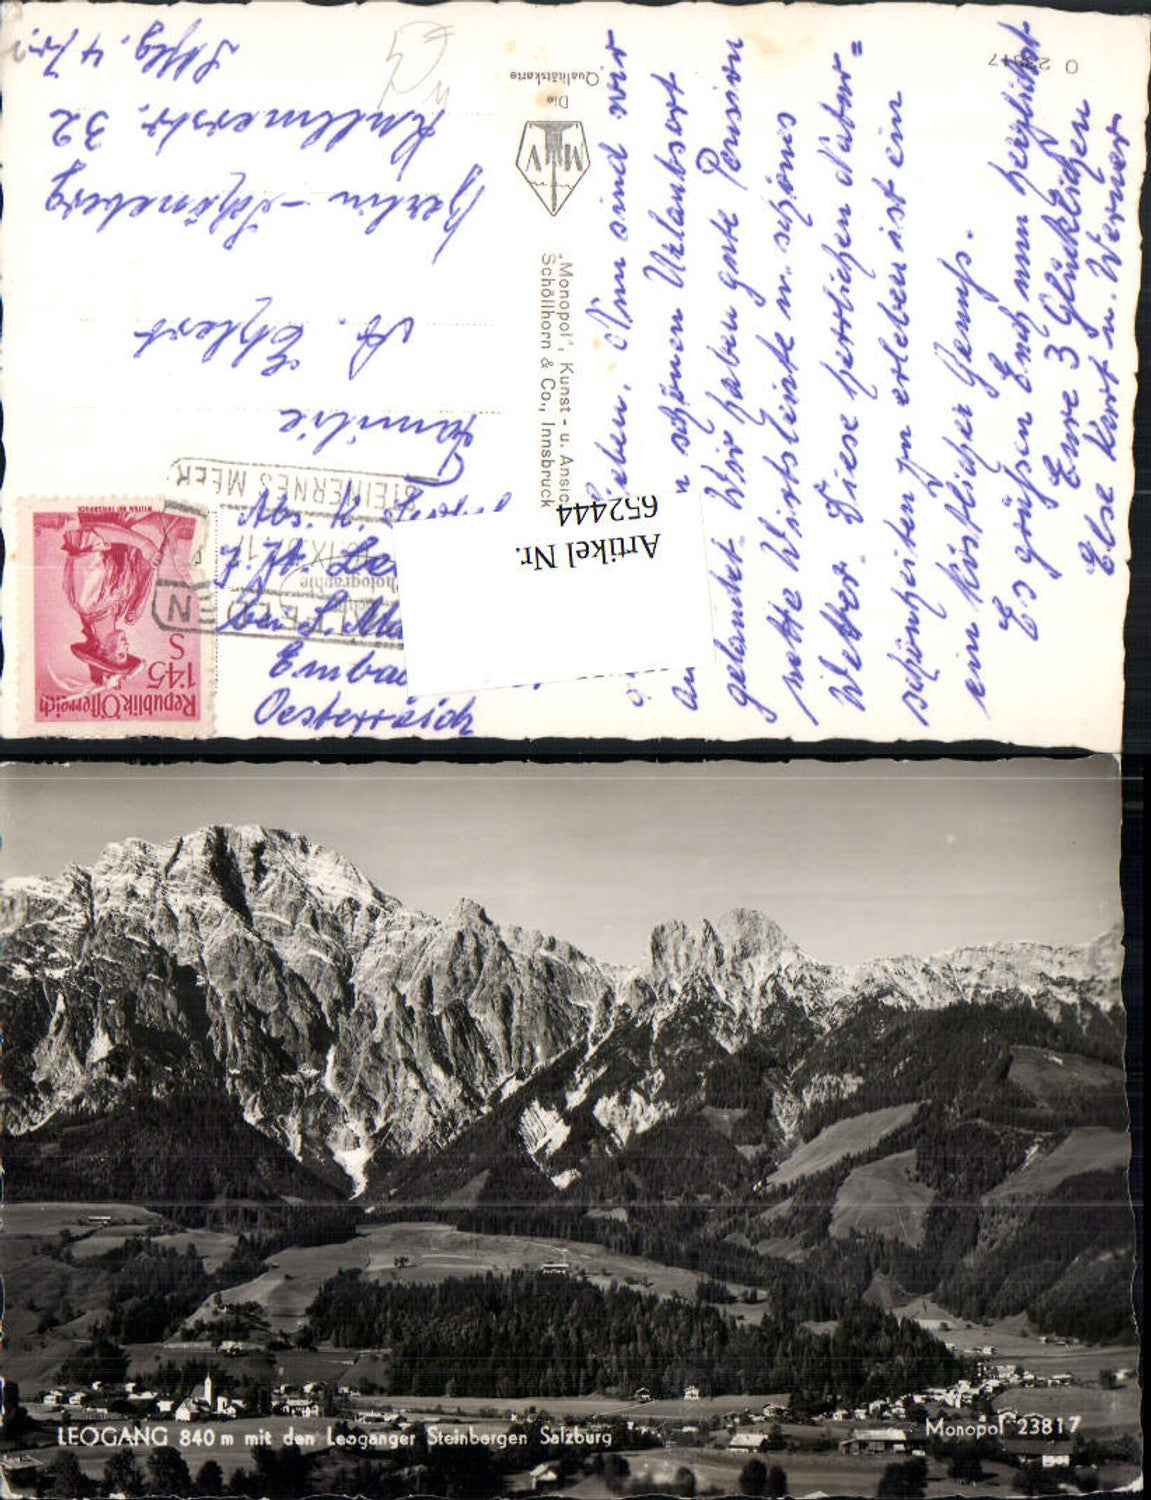 Ihr Lieben. Nun sind wir
am schönen Urlaubsort
gelandet. Wir haben gute Pension
nette Wirtsleute u. schönes
Wetter. Diese herrlichen Natur=
schönheiten zu erleben ist ein
ein köstlicher Genuß.
Es grüßen Euch nun herzlichst
Eure 3 Glücklichen
Else Kurt u. Werner
O 23817
Die
Qualitätskarte
M V
"Monopol", Kunst- u. Ansic
Schöllhorn & Co., Innsbruck
Artikel Nr.
652444
Republik Österreich
1'45
S
STEINERNES MEER
IX
Familie
A. Ehlert
Berlin-Schöneberg
32
Österreich
LEOGANG 840 m mit den Leoganger Steinbergen Salzburg
Monopol 23817